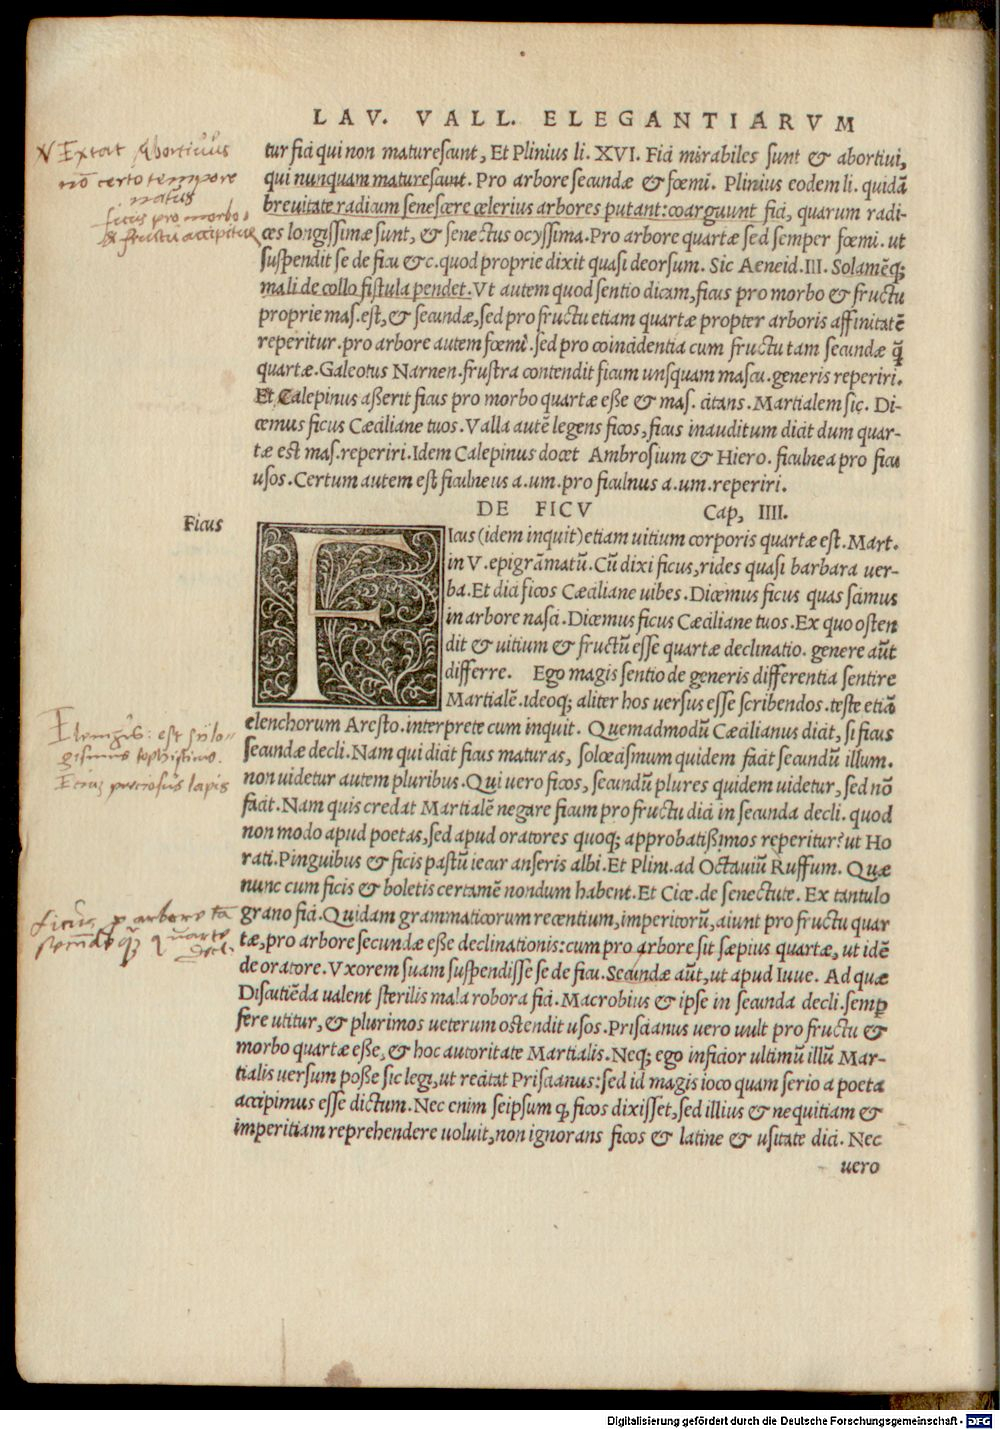 LAV. VALL. ELEGANTIARVM
tur fici qui non maturescunt, Et Plinius li. XVI. Fici mirabiles sunt & abortivi,
qui nunquam maturescunt. Pro arbore secundæ & fœmi. Plinius eodem li. quidā
brevitate radicum senescere celerius arbores putant: coarguunt fici, quarum radi-
ces longissimæ sunt, & senectus ocyssima. Pro arbore quartæ sed semper fœmi. ut
suspendit se de ficu &c. quod proprie dixit quasi deorsum. Sic Aeneid. III. Solamēq;
mali de collo fistula pendet. Vt autem quod sentio dicam, ficus pro morbo & fructu
proprie mas. est, & secundæ, sed pro fructu etiam quartæ propter arboris affinitatē
reperitur. pro arbore autem fœmi. sed pro coincidentia cum fructu tam secundæ q̄
quartæ. Galeotus Narnen. frustra contendit ficum unsquam mascu. generis reperiri.
Et Calepinus aßerit ficus pro morbo quartæ eße & mas. citans. Martialem sic. Di-
cemus ficus Cæciliane tuos. Valla autē legens ficos, ficus inauditum dicit dum quar-
tæ est mas. reperiri. Idem Calepinus docet Ambrosium & Hiero. ficulnea pro ficu
usos. Certum autem est ficulneus a. um. pro ficulnus a. um. reperiri.
DE FICV Cap, IIII.
Ficus
FIcus (idem inquit) etiam uitium corporis quartæ est. Mart.
in V. epigrāmatū. Cū dixi ficus, rides quasi barbara uer-
ba. Et dici ficos Cæciliane iubes. Dicemus ficus quas scimus
in arbore nasci. Dicemus ficus Cæciliane tuos. Ex quo osten
dit & uitium & fructū esse quartæ declinatio. genere aūt
differre. Ego magis sentio de generis differentia sentire
Martialē. ideoq; aliter hos uersus esse scribendos. teste etiā
elenchorum Aresto. interprete cum inquit. Quemadmodū Cæcilianus dicit, si ficus
secundæ decli. Nam qui dicit ficus maturas, solœcismum quidem facit secundū illum.
non uidetur autem pluribus. Qui uero ficos, secundū plures quidem uidetur, sed nō
facit. Nam quis credat Martialē negare ficum pro fructu dici in secunda decli. quod
non modo apud poetas, sed apud oratores quoq; approbatißimos reperitur? ut Ho
rati. Pinguibus & ficis pastū iecur anseris albi. Et Plini. ad Octauiū Ruffum. Quæ
nunc cum ficis & boletis certamē nondum habent. Et Cice. de senectute. Ex tantulo
grano fici. Quidam grammaticorum recentium, imperitorū, aiunt pro fructu quar
tæ, pro arbore secundæ eße declinationis: cum pro arbore sit sæpius quartæ, ut idē
de oratore. Vxorem suam suspendisse se de ficu. Secundæ aūt, ut apud Iuue. Ad quæ
Discutiēda ualent sterilis mala robora fici. Macrobius & ipse in secunda decli. semp
fere utitur, & plurimos ueterum ostendit usos. Priscianus uero uult pro fructu &
morbo quartæ eße, & hoc autoritate Martialis. Neq; ego inficior ultimū illū Mar-
tialis uersum poße sic legi, ut recitat Priscianus: sed id magis ioco quam serio a poeta
accipimus esse dictum. Nec enim seipsum q ficos dixisset, sed illius & nequitiam &
imperitiam reprehendere uoluit, non ignorans ficos & latine & usitate dici. Nec
uero
Extat Abortivus
nō certo tempore
natus
ficus pro morbo
& fructu accipitur
Elenchus: est sylo-
gismus sophisticus.
preciosus lapis
ficus p arbore tā
secundæ q̄ quarte
decl.
Digitalisierung gefördert durch die Deutsche Forschungsgemeinschaft - DFG